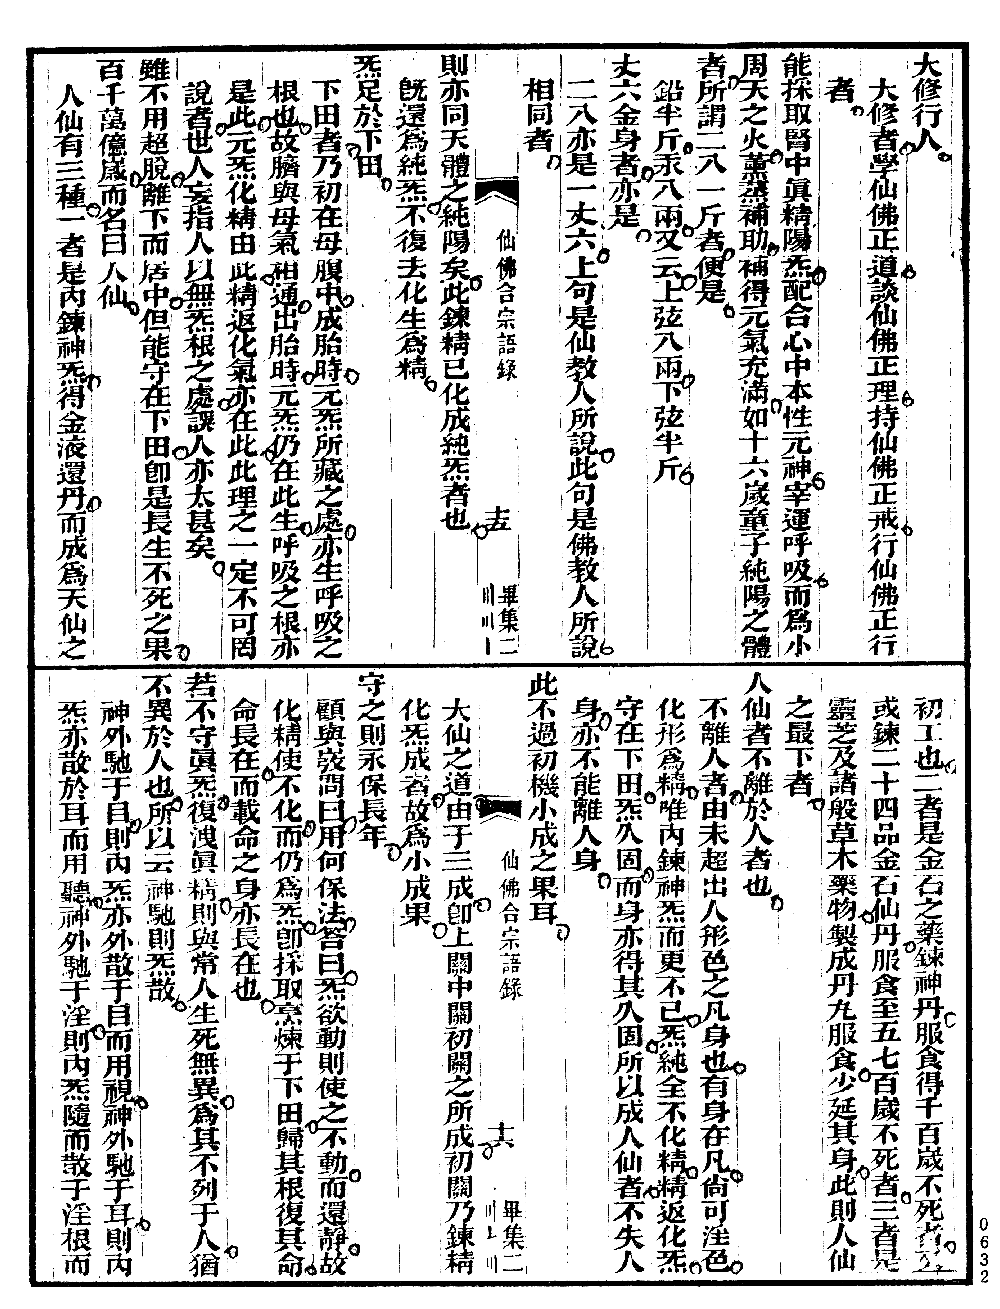 大修行人
大修者學仙佛正道談仙佛正理持仙佛正戒行仙佛正行
者
能採取腎中眞精陽炁配合心中本性元神宰運呼吸而爲小
周天之火薰蒸補助補得元氣充滿如十六歲童子純陽之體
者所謂二八一斤者便是
鉛半斤汞八兩又云上弦八兩下弦半斤
丈六金身者亦是
二八亦是一丈六上句是仙教人所說此句是佛教人所說
相同者
仙佛合宗語錄
十五
畢集二
則亦同天體之純陽矣此鍊精已化成純炁者也
既還爲純炁不復去化生爲精
炁足於下田
下田者乃初在母腹中成胎時元炁所藏之處亦生呼吸之
根也故臍與母氣相通出胎時元炁仍在此生呼吸之根亦
是此元炁化精由此精返化氣亦在此此理之一定不可罔
說者世人妄指人以無炁根之處誤人亦太甚矣
雖不用超脫離下而居中但能守在下田卽是長生不死之果
百千萬億歲而名曰人仙
人仙有三種一者是內鍊神炁得金液還丹而成爲天仙之
初工也二者是金石之藥鍊神丹服食得千百歲不死者
或鍊二十四品金石仙丹服食至五七百歲不死者三者是
靈芝及諸般草木藥物製成丹丸服食少延其身此則人仙
之最下者
人仙者不離於人者也
不離人者由未超出人形色之凡身也有身在凡尙可淫色
化形爲精唯內鍊神炁而更不已炁純全不化精精返化炁
守在下田炁久固而身亦得其久固所以成人仙者不失人
身亦不能離人身
此不過初機小成之果耳
仙佛合宗語錄
十六
畢集二
大仙之道由于三成卽上關中關初關之所成初關乃鍊精
化炁成者故爲小成果
守之則永保長年
顧與弢問曰用何保法答曰炁欲動則使之不動而還靜故
化精使不化而仍爲炁卽採取烹煉于下田歸其根復其命
命長在而載命之身亦長在也
若不守眞炁復洩眞精則與常人生死無異爲其不列于人猶
不異於人也所以云神馳則炁散
神外馳于目則內炁亦外散于目而用視神外馳于耳則內
炁亦散於耳而用聽神外馳于淫則內炁隨而散于淫根而
0632